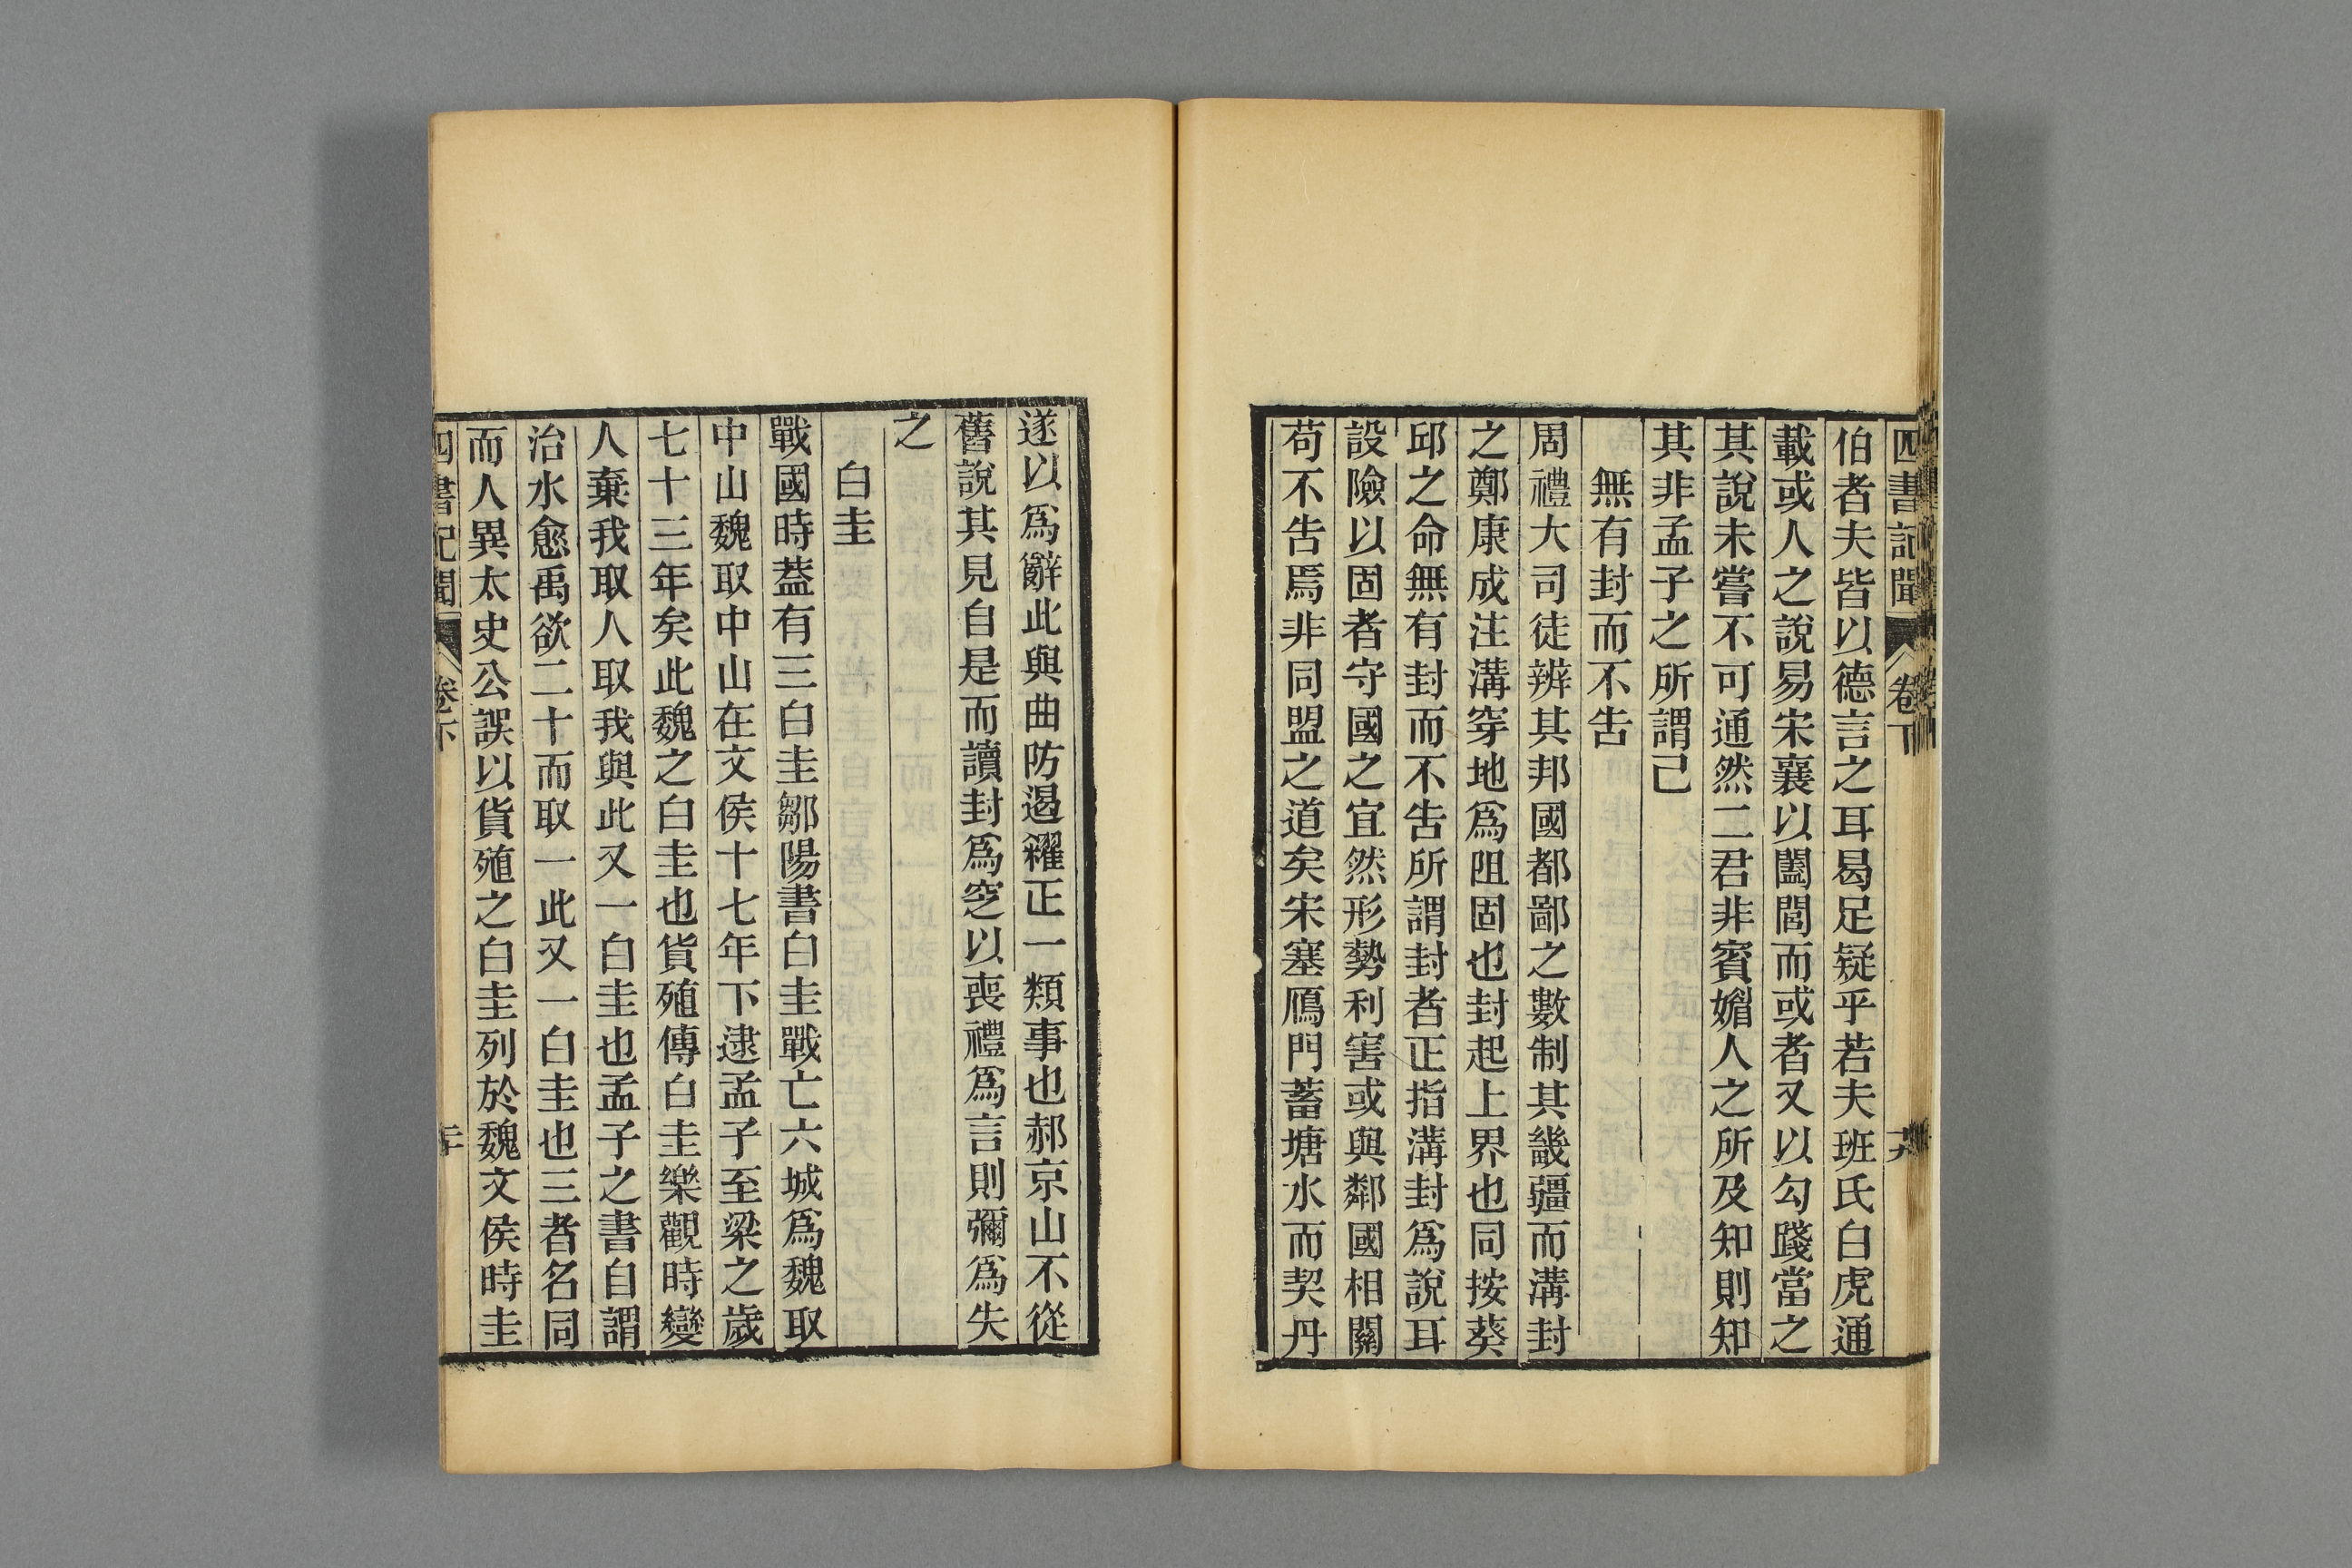 四書記聞 卷下 十九
伯者夫皆以德言之耳曷足疑乎若夫班氏白虎通
載或人之說易宋襄以闔閭而或者又以勾踐當之
其說未嘗不可通然二君非賓媚人之所及知則知
其非孟子之所謂己
無有封而不告
周禮大司徒辨其邦國都鄙之數制其畿疆而溝封
之鄭康成注溝穿地爲阻固也封起土界也同按葵
邱之命無有封而不告所謂封者正指溝封爲說耳
設險以固者守國之宜然形勢利害或與鄰國相關
苟不告焉非同盟之道矣宋塞鴈門蓄塘水而契丹
遂以爲辭此與曲防遏糴正一類事也郝京山不從
舊說其見自是而讀封爲窆以喪禮爲言則彌爲失
之
白圭
戰國時葢有三白圭鄒陽書白圭戰亡六城爲魏取
中山魏取中山在文侯十七年下逮孟子至梁之歲
七十三年矣此魏之白圭也貨殖傳白圭樂觀時變
人棄我取人取我與此又一白圭也孟子之書自謂
治水愈禹欲二十而取一此又一白圭也三者名同
而人異太史公誤以貨殖之白圭列於魏文侯時圭
四書記聞 卷下 二十